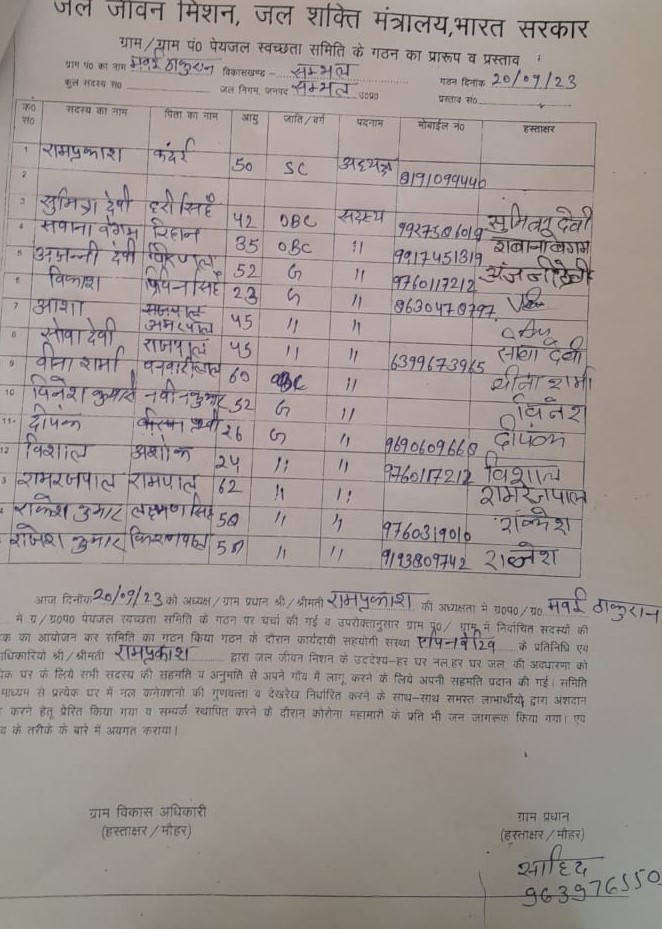 जल जीवन मिशन, जल शक्ति मंत्रालय,भारत सरकार
ग्राम/ग्राम पं० पेयजल स्वच्छता समिति के गठन का प्रारूप व प्रस्ताव
ग्राम पं० का नाम मवई ठाकुरान विकासखण्ड - सम्भल गठन दिनांक 20/09/23
कुल सदस्य सं० जल निगम, जनपद सम्भल उ०प्र० प्रस्ताव सं०
क्र० सं० सदस्य का नाम पिता का नाम आयु जाति/वर्ग पदनाम मोबाईल नं० हस्ताक्षर
1 रामप्रकाश 50 SC अध्यक्ष 8191099446
2
3 सुमित्रा देवी हरीसिहँ 42 OBC सदस्य 9927506019 सुमितरा देवी
4 सवाना वेगम रिहान 35 OBC " 9917451319 शबाना बेगम
5 अन्जनी देवी 52 G " 9760117212 अंजनी देवी
6 विकाश विपिन सिहँ 23 G " 8630478797
7 आशा अमरपाल 45 " "
8 सोवा देवी राजपाल 45 " " 6399673965 सोबा देवी
9 वीना शर्मा वनवारीलाल 60 OBC " वीना शर्मा
10 विनेश कुमार नवीनकुमार 52 G " विनेश
11 दीपांक 26 G " 9690609660 दीपांक
12 विशाल अशोक 24 " " 9760117212 विशाल
3 रामरजपाल रामपाल 62 " " रामरजपाल
राकेश कुमार लक्ष्मण सिंह 50 " " 9760319010 राकेश
राजेश कुमार किशनपाल 50 " " 9193809742 राजेश
आज दिनांक 20/09/23 को अध्यक्ष/ग्राम प्रधान श्री/श्रीमती रामप्रकाश की अध्यक्षता में ग्र०पं०/ग्रा० मवई ठाकुरान
में ग्र/ग्र०पं० पेयजल स्वच्छता समिति के गठन पर चर्चा की गई व उपरोक्तानुसार ग्राम पं०/ ग्राम में निर्वाचित सदस्यों की
क का आयोजन कर समिति का गठन किया गठन के दौरान कार्यदायी सहयोगी संस्था के प्रतिनिधि एवं
धिकारियो श्री/श्रीमती रामप्रकाश द्वारा जल जीवन मिशन के उददेश्य-हर घर नल,हर घर जल, की अवधारणा को
क घर के लिये सभी सदस्य की सहमति व अनुमति से अपने गाँव में लागू करने के लिये अपनी सहमति प्रदान की गई। समिति
माध्यम से प्रत्येक घर में नल कनेक्शनो की गुणवत्ता व देखरेख निर्धारित करने के साथ-साथ समस्त लाभार्थीयों द्वारा अंशदान
करने हेतु प्रेरित किया गया व सम्पर्क स्थापित करने के दौरान कोरोना महामारी के प्रति भी जन जागरूक किया गया। एवं
व के तरीके के बारे में अवगत कराया।
ग्राम विकास अधिकारी ग्राम प्रधान
(हस्ताक्षर/मौहर) (हस्ताक्षर/मौहर)
साहिद
963976550